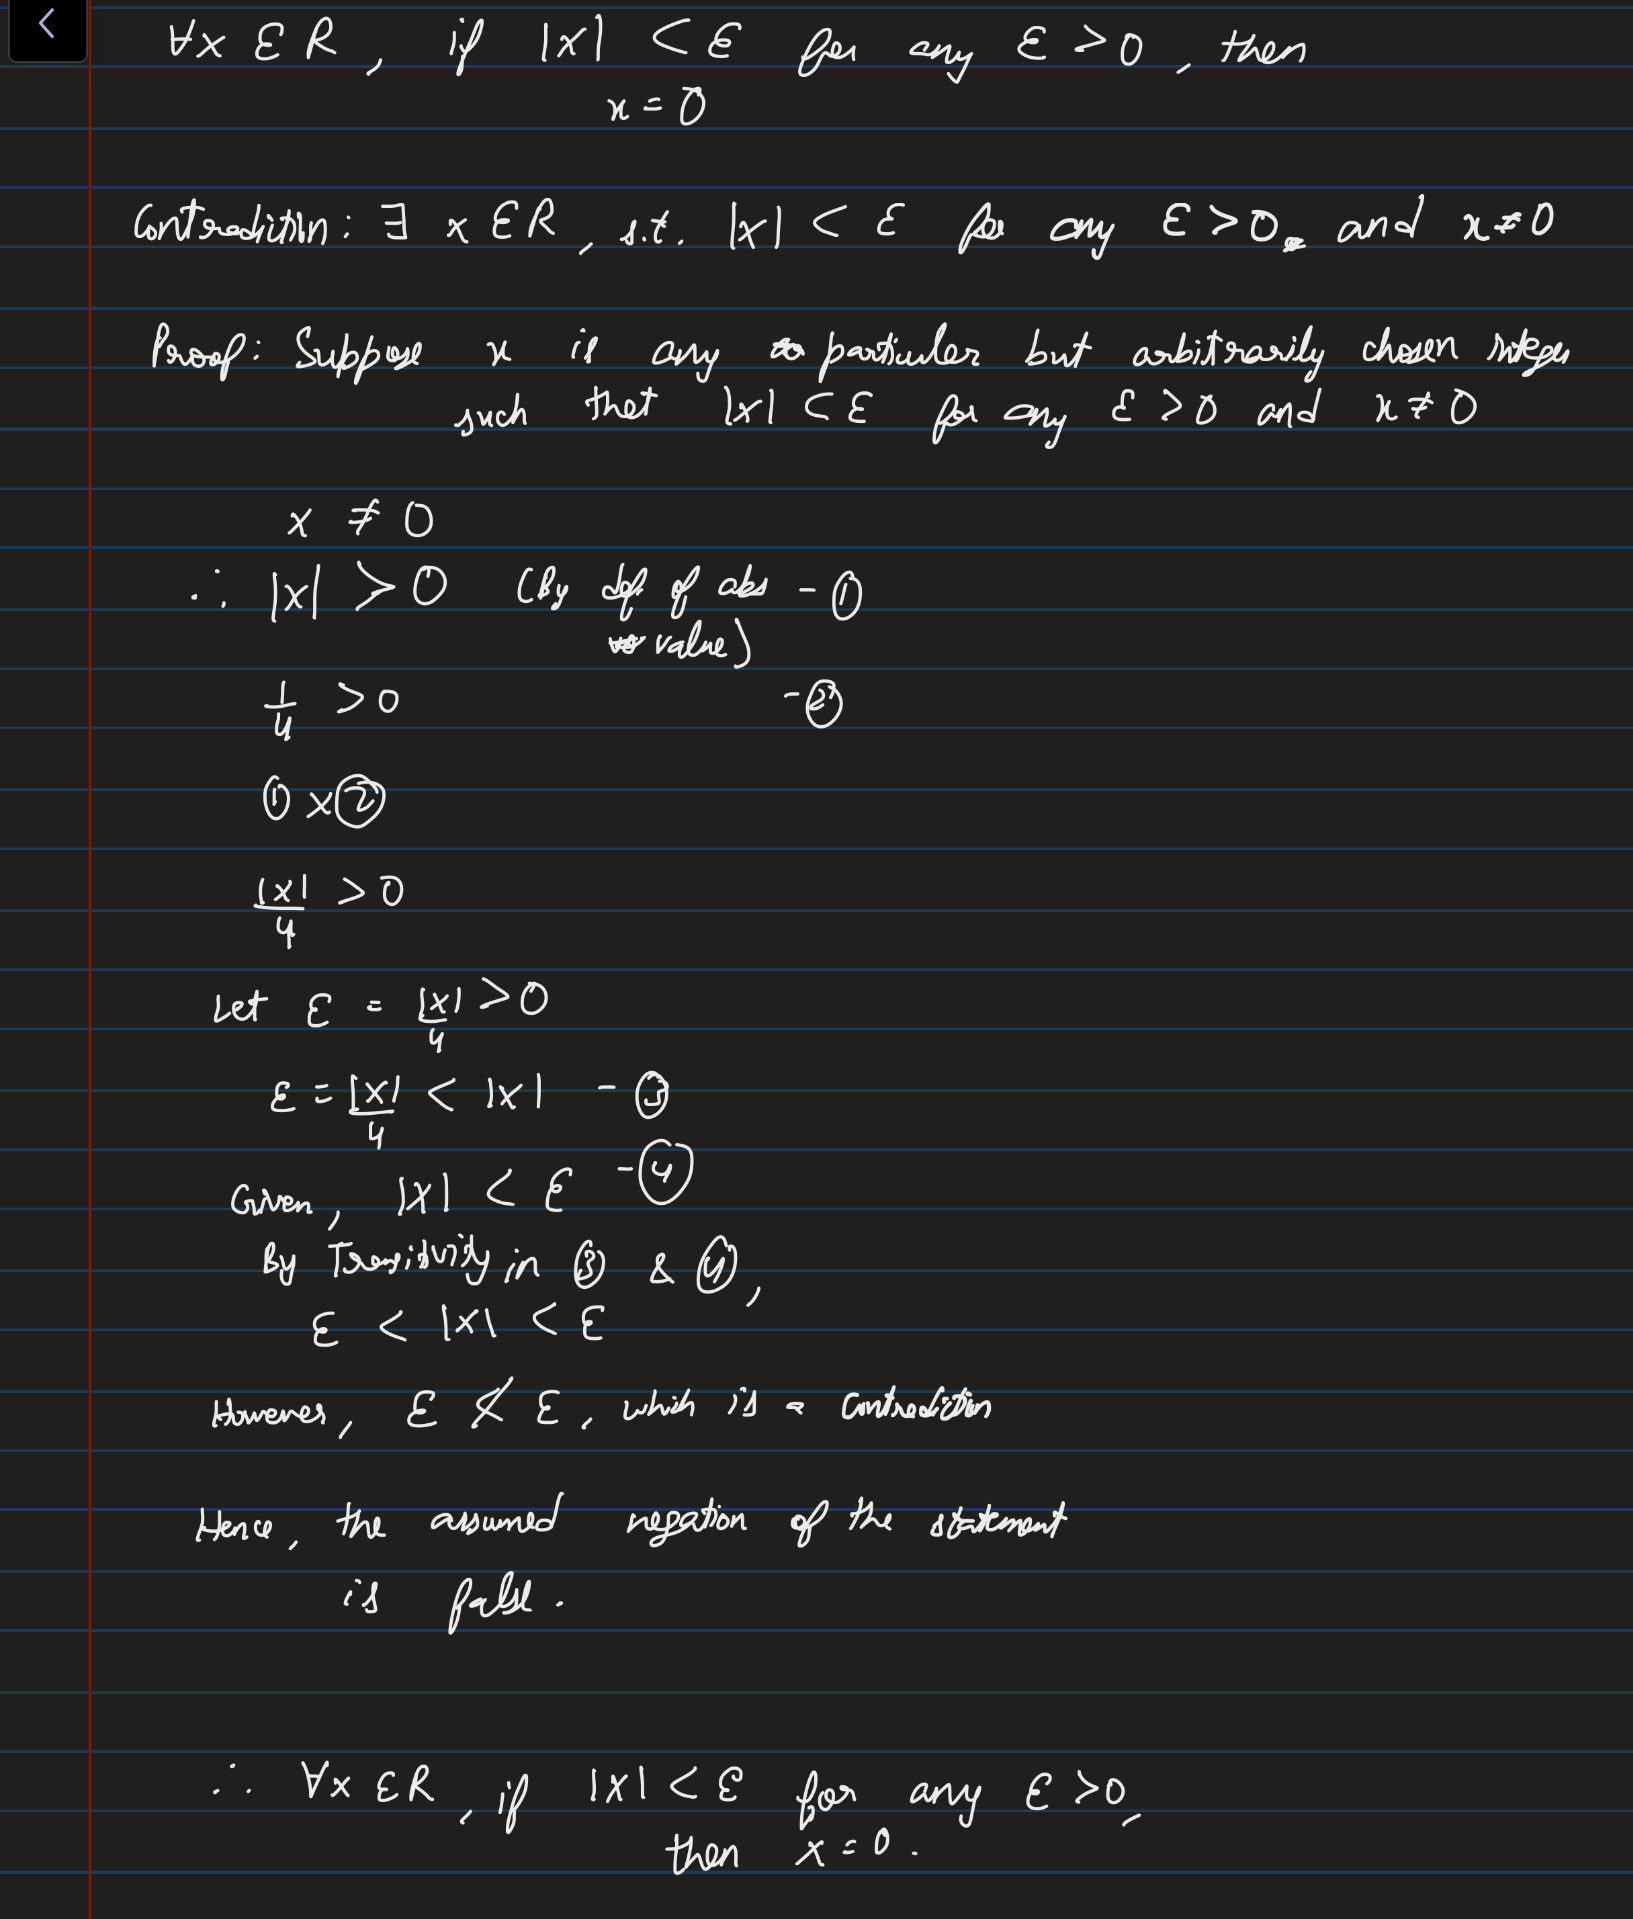 ∀x ε R, if |x| < ε for any ε > 0, then
x = 0
Contradiction: ∃ x ε R, s.t. |x| < ε for any ε > 0 and x ≠ 0
Proof: Suppose x is any particular but arbitrarily chosen integer
such that |x| < ε for any ε > 0 and x ≠ 0
x ≠ 0
∴ |x| > 0 (By def. of abs - ①
value)
1/4 > 0 - ②
① x ②
|x|/4 > 0
Let ε = |x|/4 > 0
ε = |x|/4 < |x| - ③
Given, |x| < ε - ④
By Transitivity in ③ & ④,
ε < |x| < ε
However, ε ≮ ε, which is a contradiction
Hence, the assumed negation of the statement
is false.
∴ ∀x ε R, if |x| < ε for any ε > 0,
then x = 0.